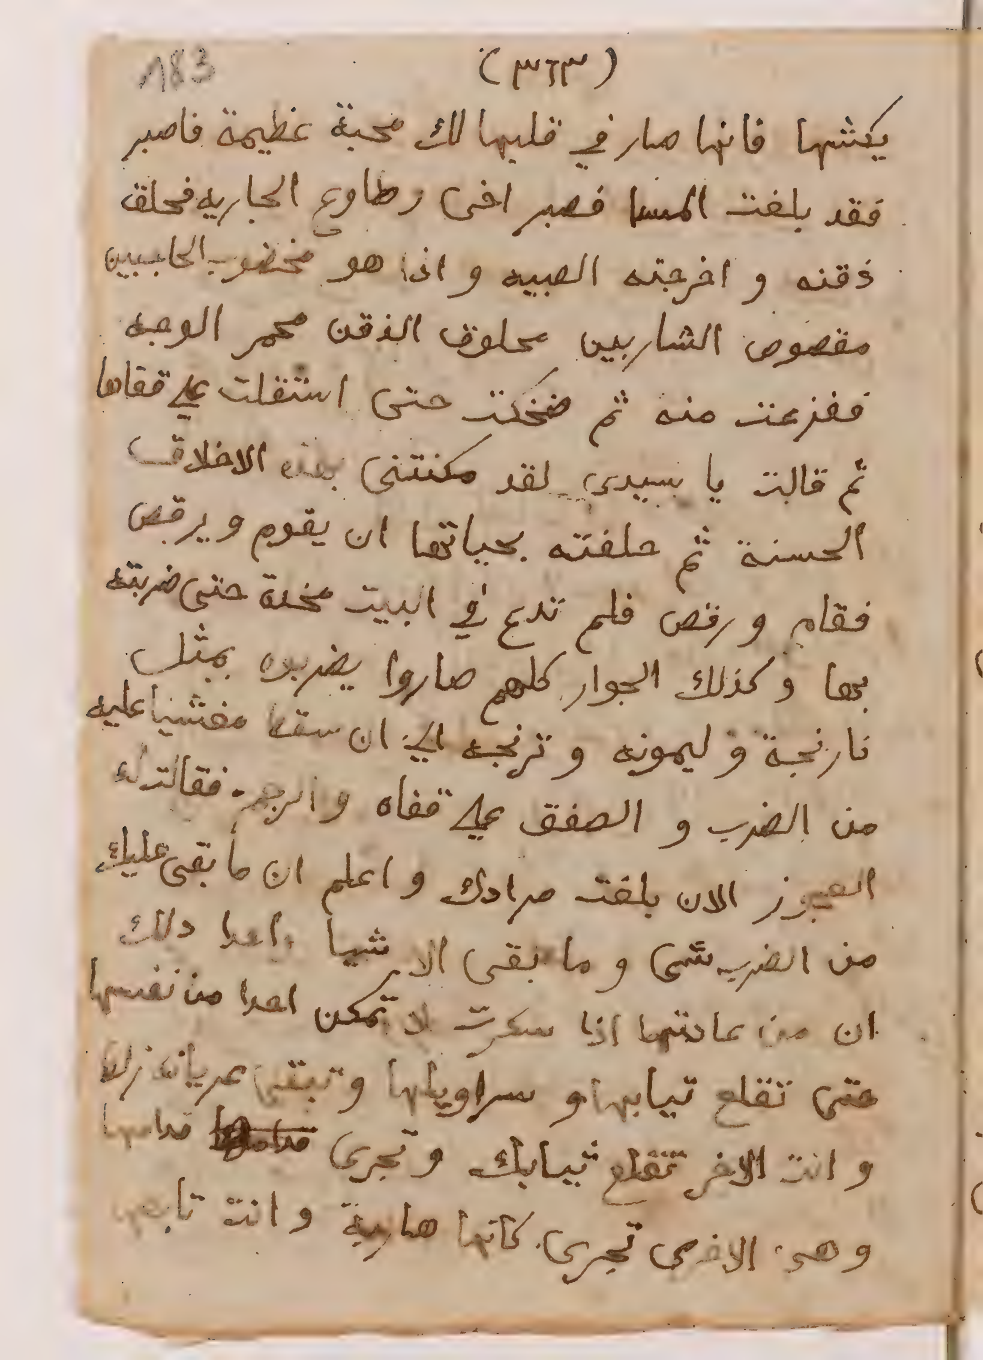 183
(٣٦٣)
يكشها فانها صار في قلبها لك محبة عظيمة فاصبر
فقد بلغت المسا فصبر اخى وطاوع الجاريه فحلق
ذقنه و اخرجته الصبيه و اذا هو مخضوب الحاجبين
مقصوص الشاربين محلوق الذقن محمر الوجه
ففزعت منه ثم ضحكت حتى استقلت على قفاها
ثم قالت يا سيدي لقد مكنتنى بهذه الاخلاق
الحسنة ثم حلفته بحياتها ان يقوم و يرقص
فقام و رقص فلم تدع في البيت مخدة حتى ضربته
بها و كذلك الجوار كلهم صاروا يضربوه بمثل
نارنجة و ليمونه و ترنجه الى ان سقط مغشيا عليه
من الضرب و الصفق على قفاه و الرجم فقالت له
العجوز الان بلغت مرادك و اعلم ان ما بقى عليك
من الضرب شى و ما بقى الا شيا واحدا دلك
ان من عادتها اذا سكرت لا تمكن احدا من نفسها
حتى تقلع تيابها و سراويلها و تبقى عريانه
و انت الاخر تقلع ثيابك و تجرى قدامها
و هى الاخرى تجرى كانها هاربة و انت تابعها